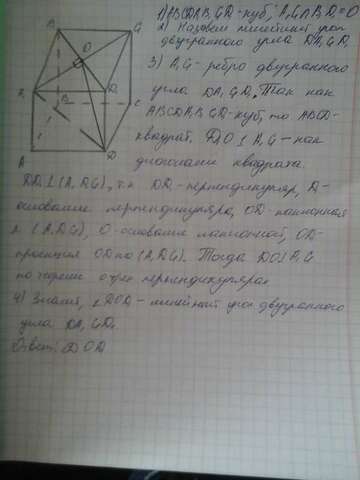 1) ABCDA₁B₁C₁D₁ - куб, A₁C₁∩B₁D₁=O
2) Назовем линейный угол
двугранного угла DA₁C₁D₁
3) A₁C₁ - ребро двугранного
угла DA₁C₁D₁. Так как
ABCDA₁B₁C₁D₁ - куб, то ABCD -
квадрат. D₁O ⊥ A₁C₁ - как
диагонали квадрата.
DD₁ ⊥ (A₁D₁C₁), т.к. DD₁ - перпендикуляр, D₁ -
основание перпендикуляра, OD - наклонная
к (A₁D₁C₁), O - основание наклонной, OD₁ -
проекция OD на (A₁D₁C₁). Тогда DO ⊥ A₁C₁
по теореме о трех перпендикулярах
4) Значит, ∠DOD₁ - линейный угол двугранного
угла DA₁C₁D₁
Ответ: ∠DOD₁
B₁
C₁
O
A₁
D₁
B
C
A
D